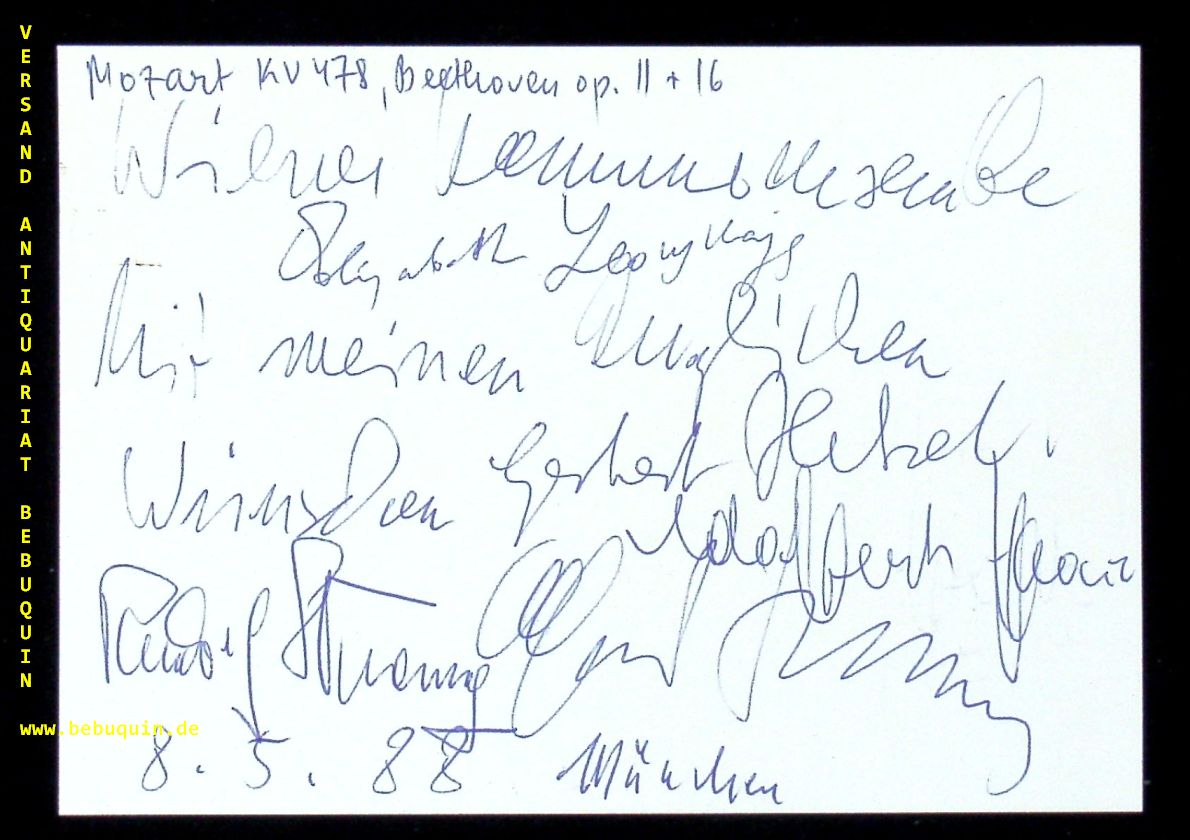 VERSAND ANTIQUARIAT BEBUQUIN
www.bebuquin.de
Mozart KV 478, Beethoven op. 11 + 16
Wiener
Elisabeth Leonskaja
Mit meinen
Wünschen Gerhart Hetzel
Adalbert
Rudolf
8. 5. 88 München